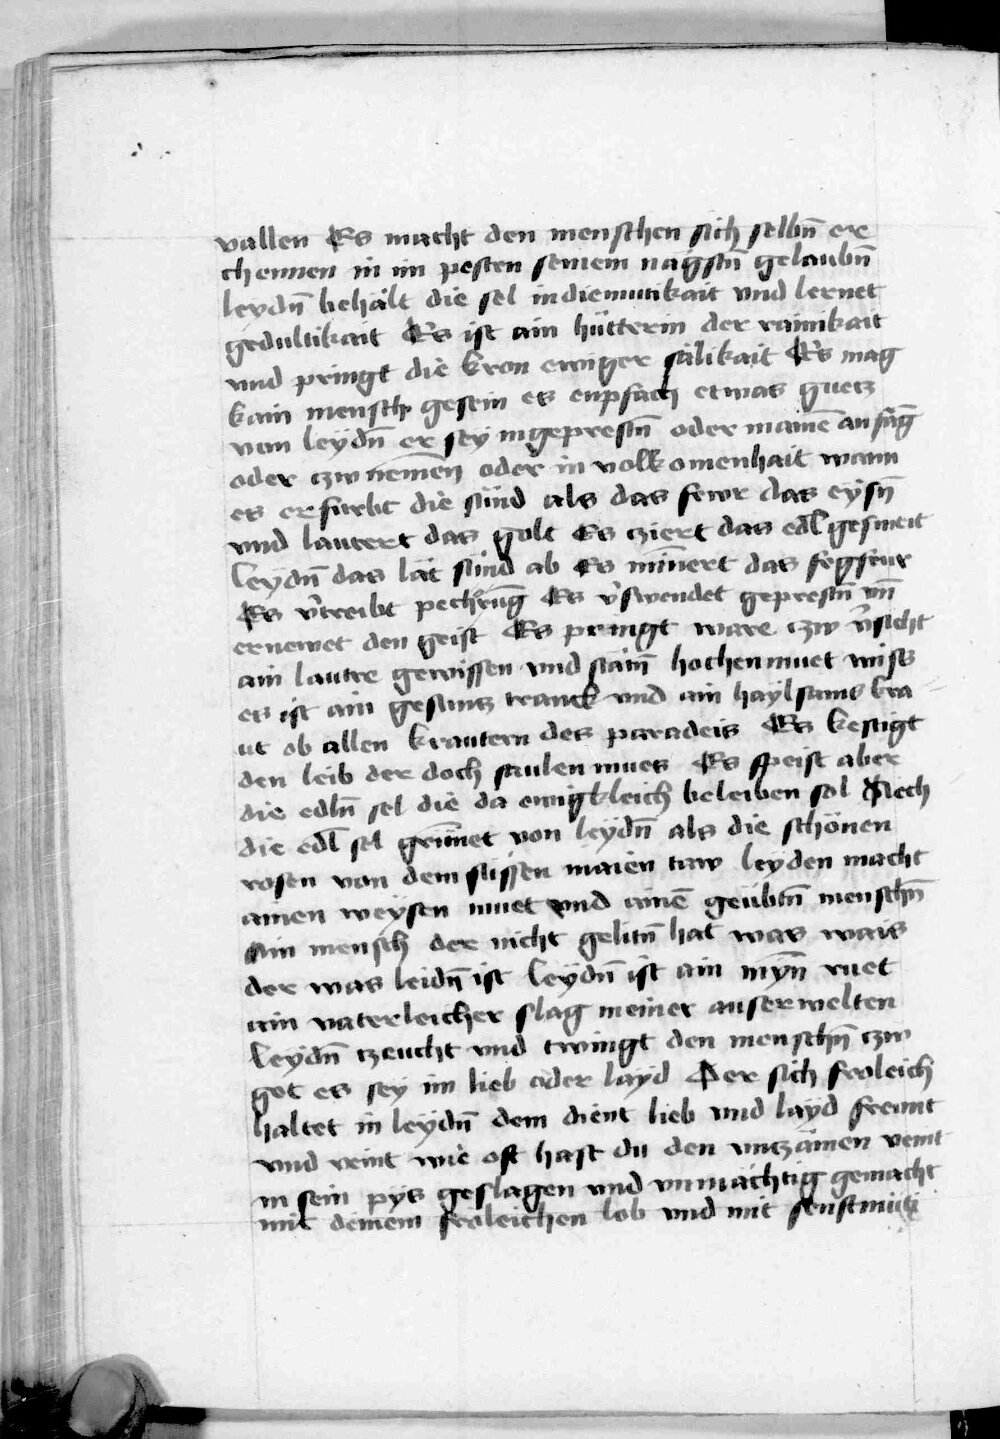 vallen Es macht den menschen sich selbn̄ er
chennen in im pesten seinem nagstn̄ gelaubn̄
leydn̄ behält die sel in diemutikait vnd lernet
gedultikait Es ist ain hütterin der rainikait
vnd pringt die kron ewiger sälikait Es mag
kain mensch gesein es enpfach etwas guetz
von leydn̄ er sey in geprestn̄ oder in ainē anfāg
oder czw nemen̄ oder in volkomenhait wann
es erfurbt die sünd als das fewr das eysn̄
vnd lautert das golt Es cziert das edl gesmeit
leydn̄ das lät sünd ab Es minnert das fegfeur
Es v̄treibt pechrūg Es v̄swendet geprestn̄ vn̄
ernewet den geist Es pringt ware czw v̄sicht
ain lautre gewissen vnd stätn̄ hochen muet wist
es ist ain gesuntz tranck vnd ain haylsams kra
ut ob allen krautern des paradeis Es kestigt
den leib der doch faulen mues Es speist aber
die edln̄ sel die da ewigkleich beleiben sol Secht
die edl sel grünet von leydn̄ als die schönen
rosen von dem süssen maien taw leyden macht
ainen weysen muet vnd ainē geübtn̄ menschn̄
Ain mensch der nicht gelitn̄ hat was wais
der was leidn̄ ist leydn̄ ist ain myn̄ ruet
ain vaterleicher slag meiner auserwelten
leydn̄ czeucht vnd twingt den menschn̄ czw
got es sey im lieb oder layd Der sich froleich
haltet in leydn̄ dem dient lieb vnd layd freunt
vnd veint wie oft hast du den vntzämen veint
in sein pys geslagen vnd vnmächtig gemacht
mit deinem froleichen lob vnd mit senftmüti